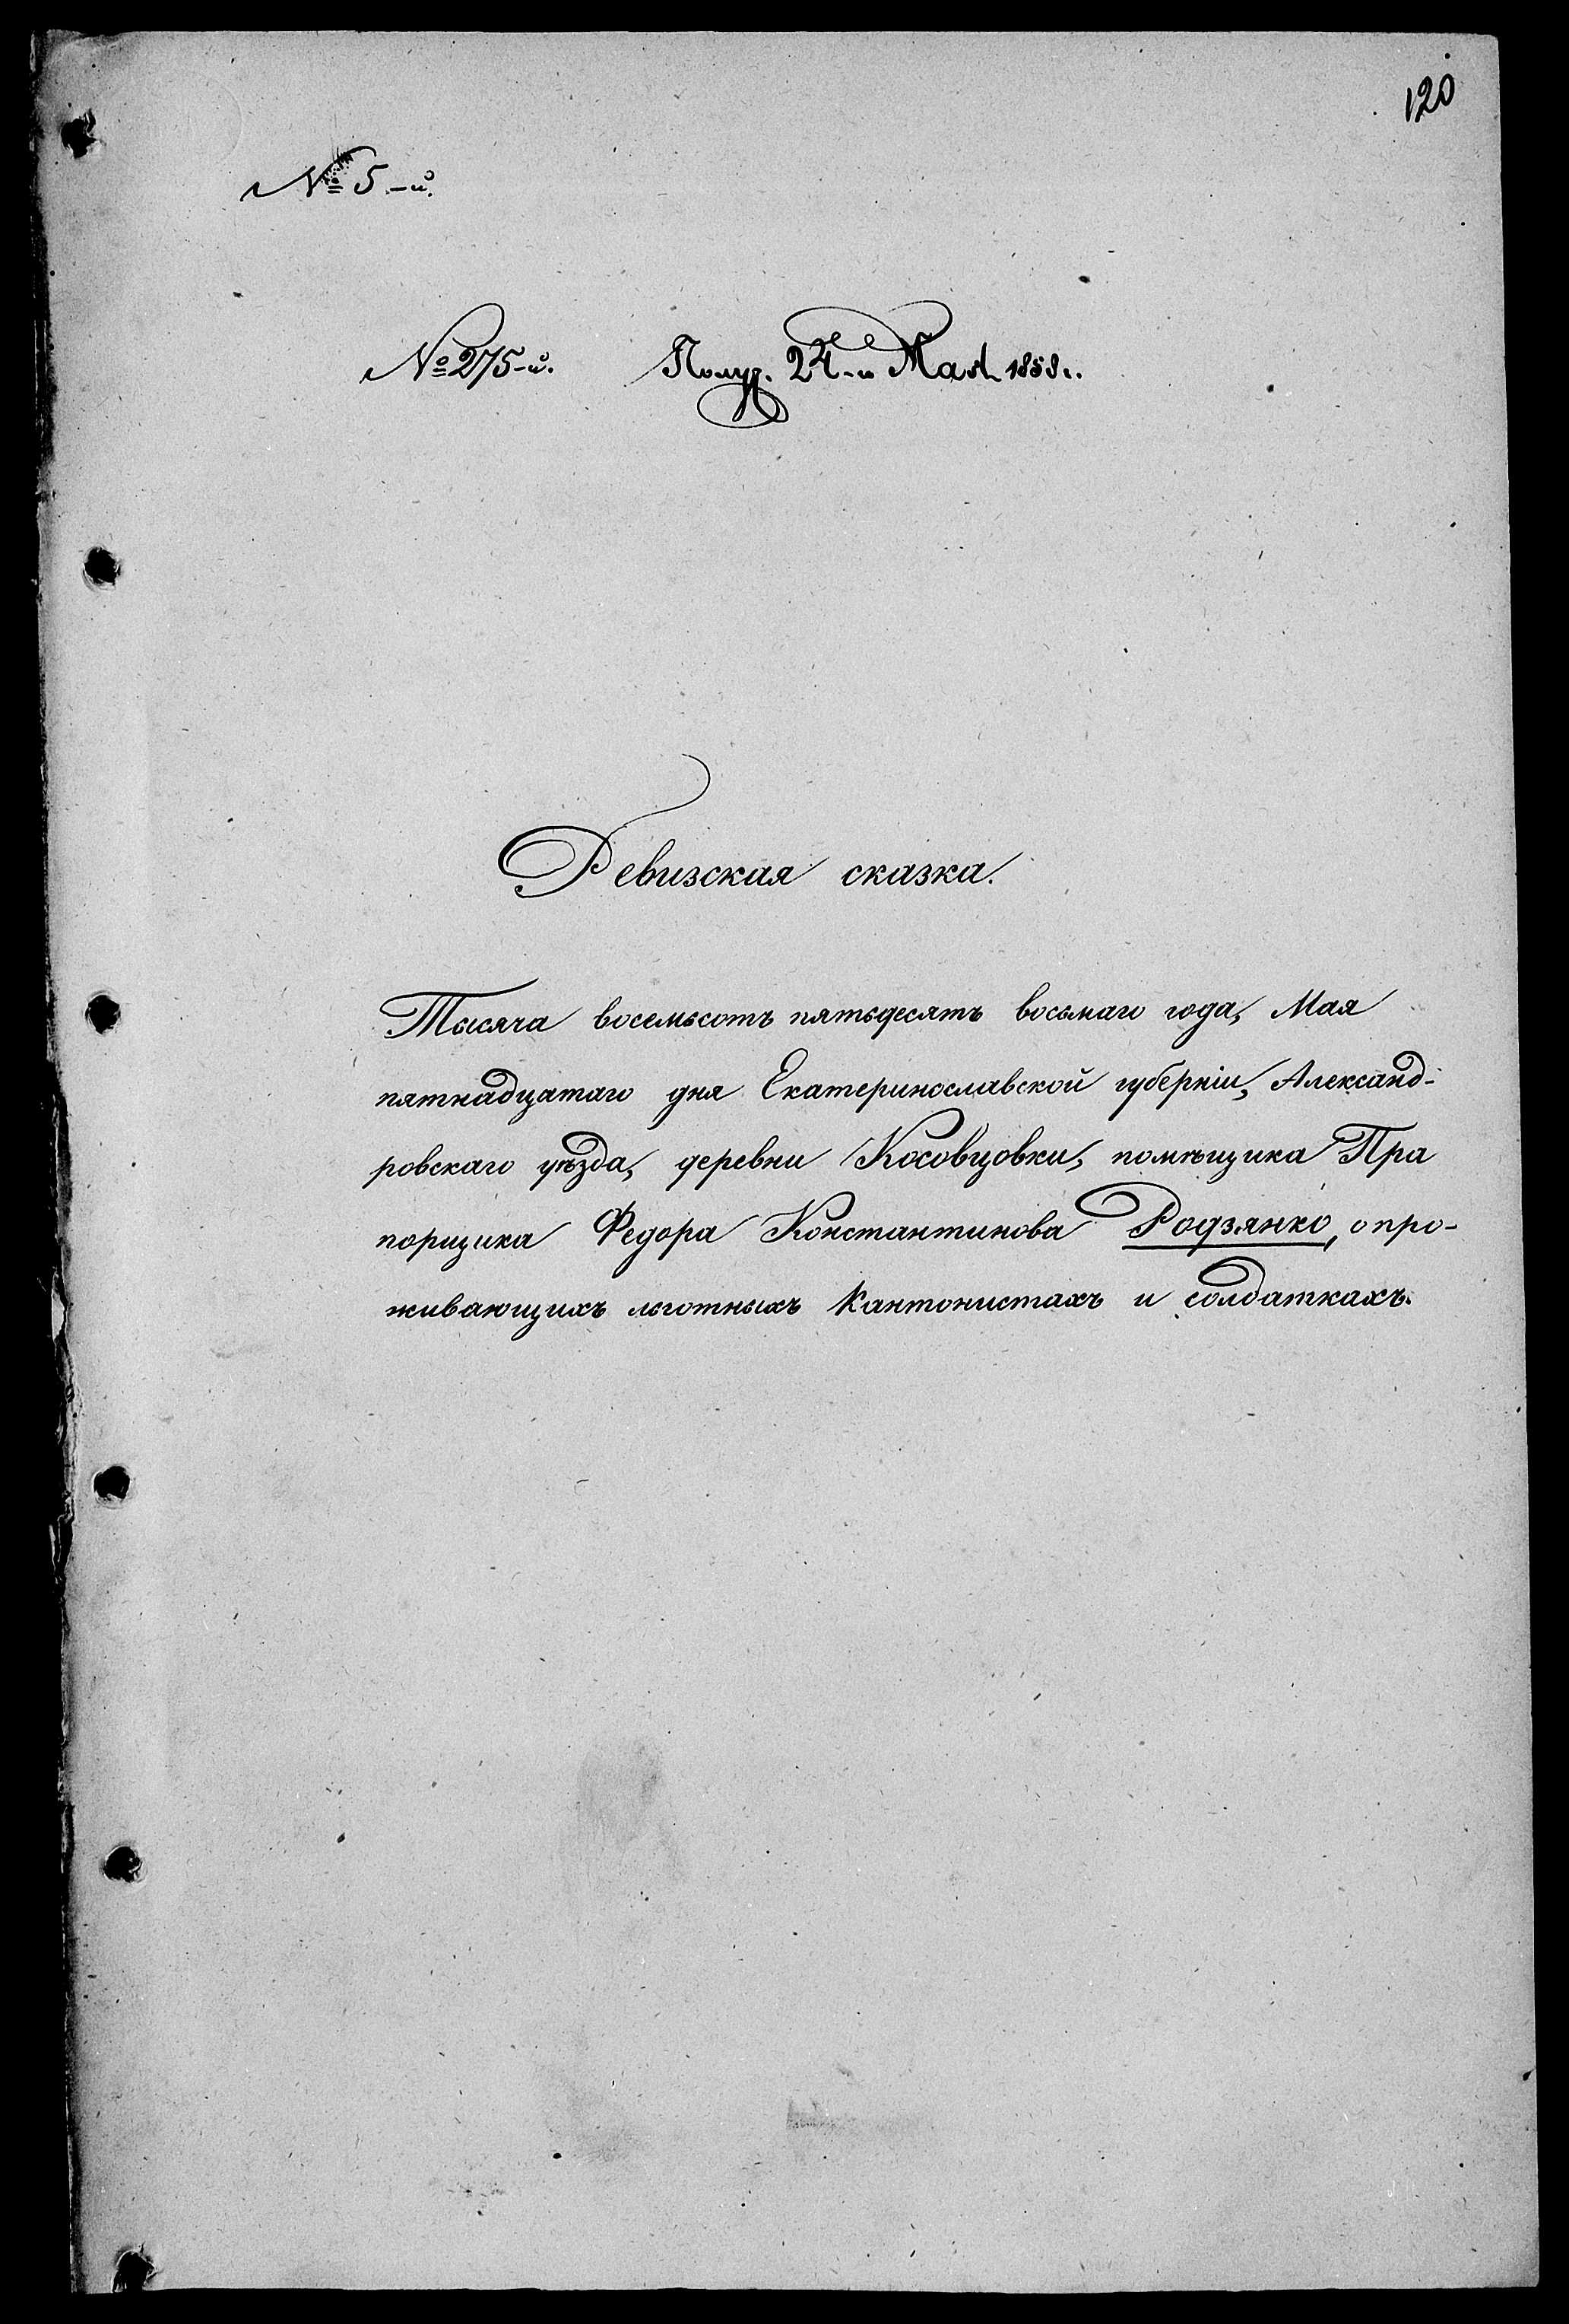 120
№ 5-й.
№ 275-й. Получ. 24-го Мая 1858 г.
Ревизская сказка.
Тысяча восемьсотъ пятьдесятъ восьмаго года, Мая
пятнадцатаго дня Екатеринославской губерніи, Александ-
ровскаго уѣзда, деревни Косовцовки, помѣщика Пра
порщика Федора Константинова Родзянко, о про-
живающихъ льготныхъ Кантонистахъ и солдаткахъ.